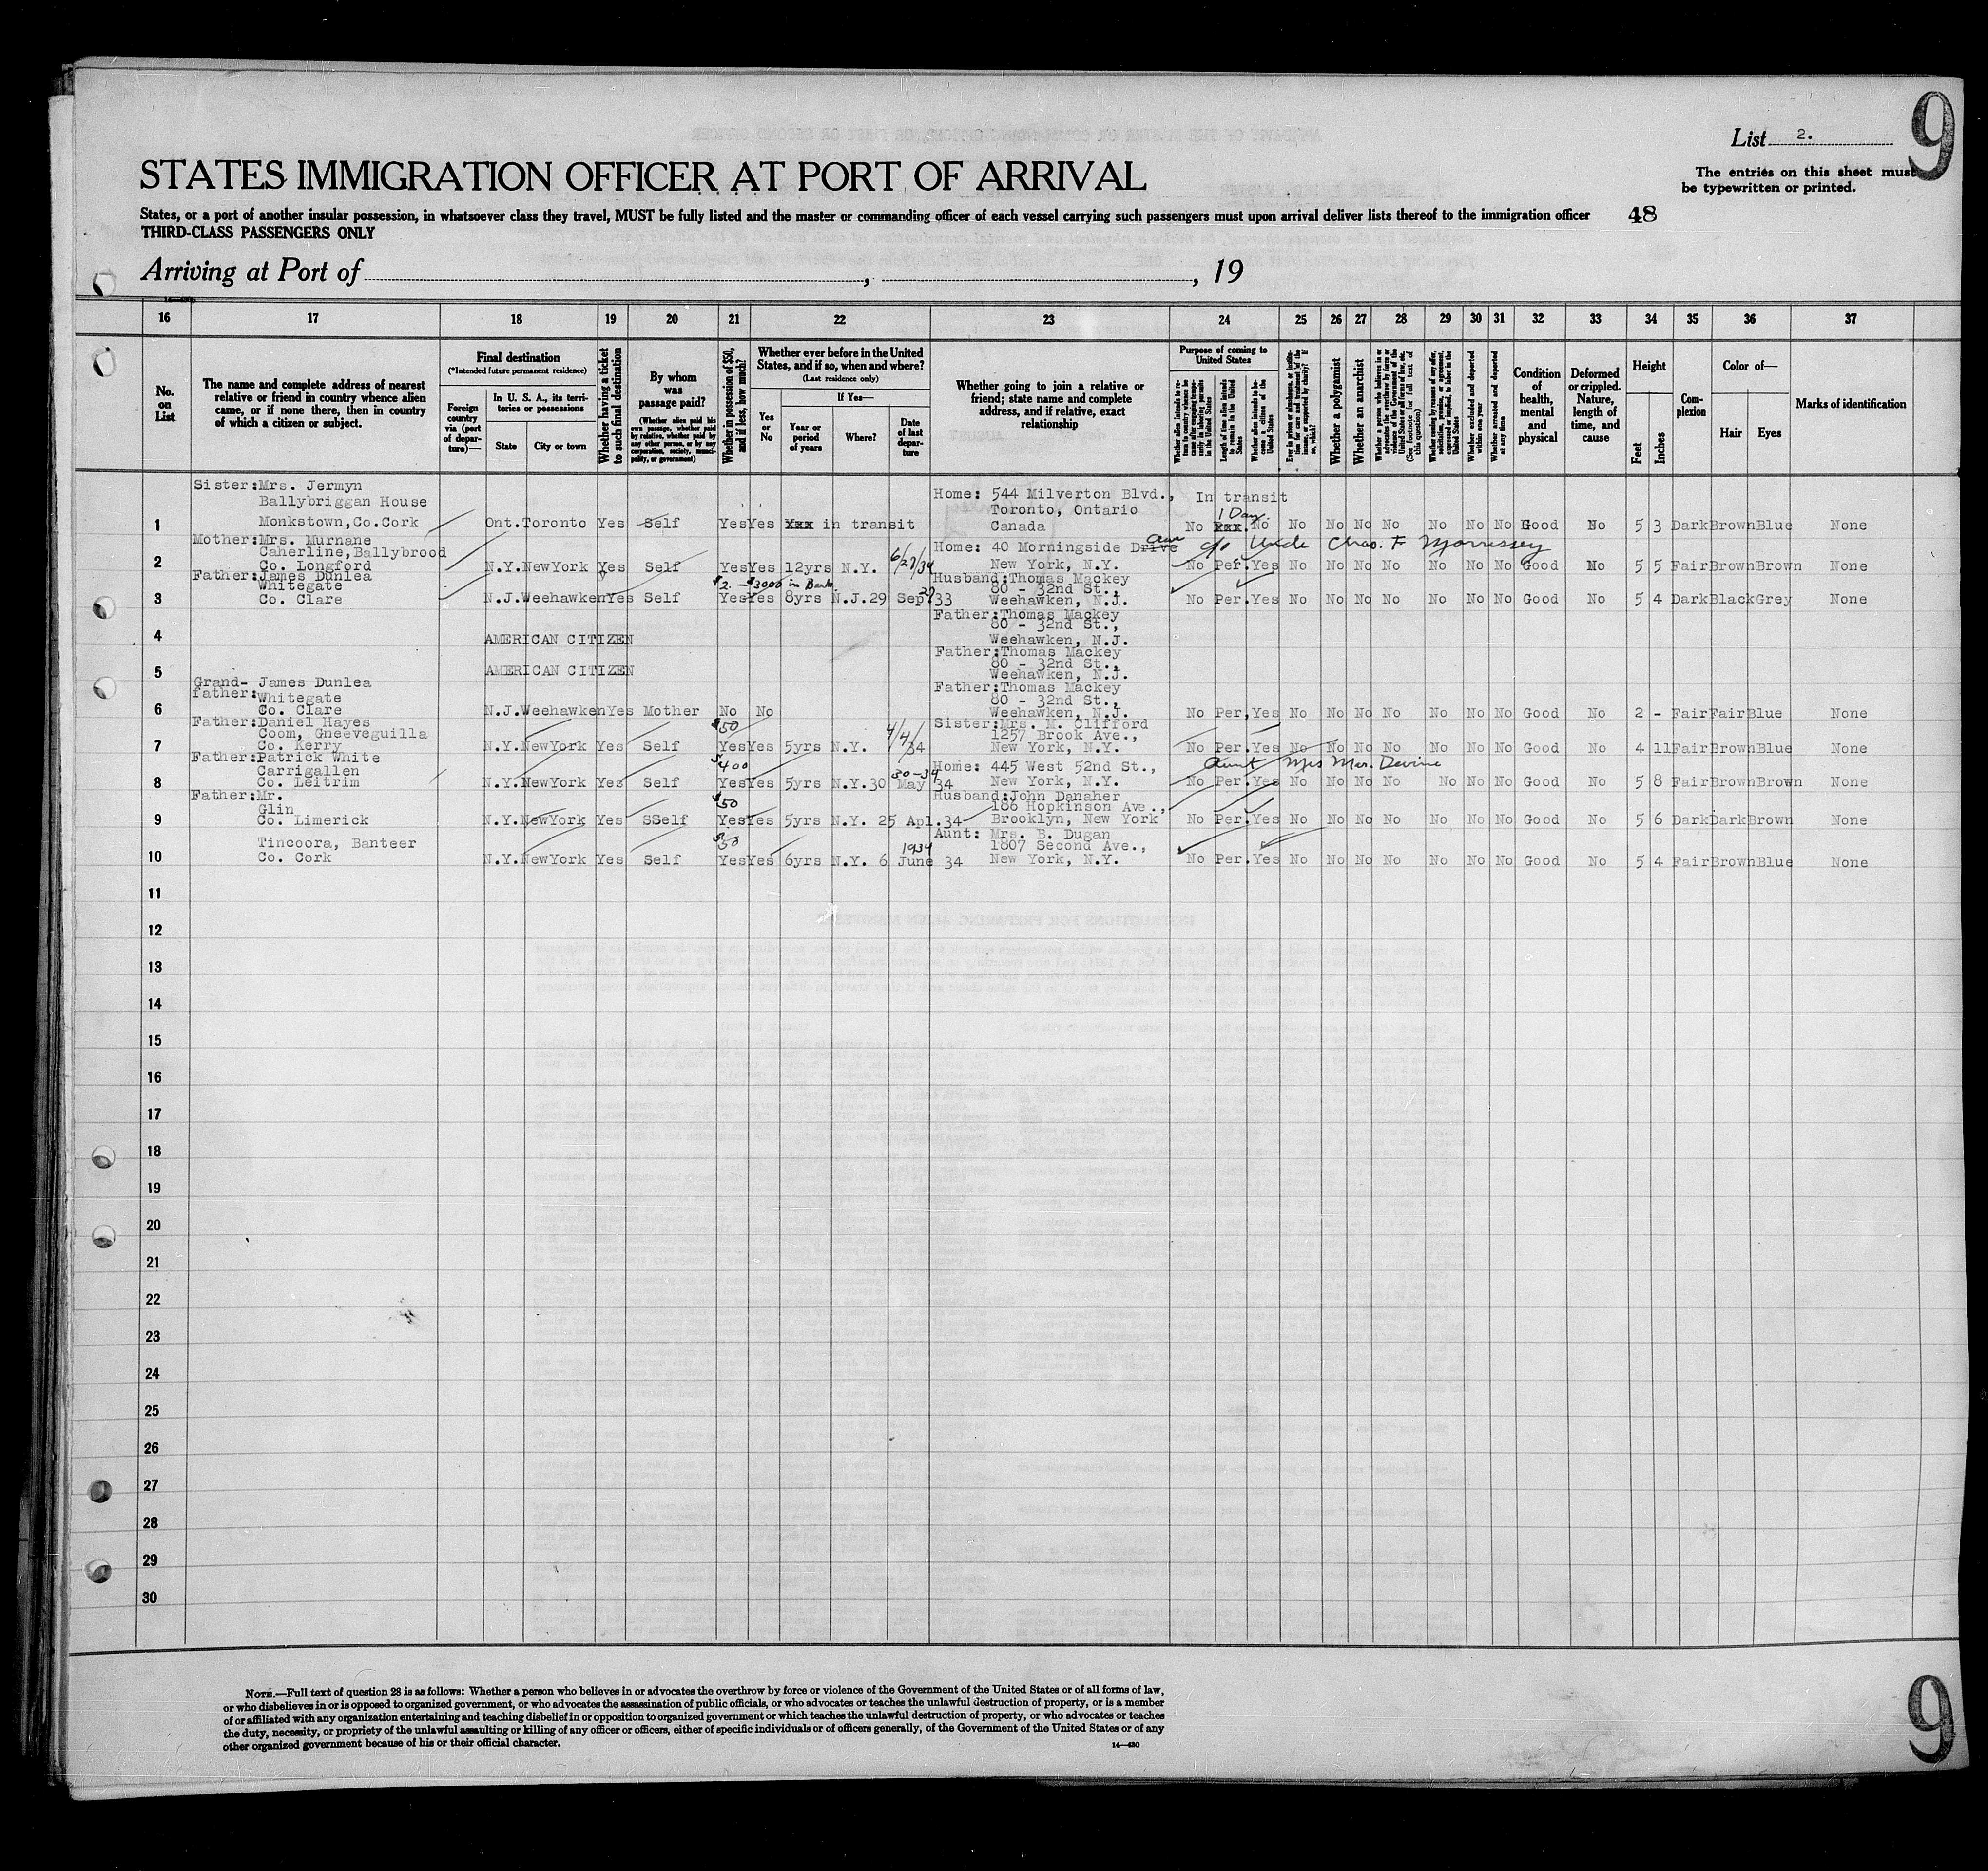 List 2.
9
STATES IMMIGRATION OFFICER AT PORT OF ARRIVAL
The entries on this sheet must
be typewritten or printed.
States, or a port of another insular possession, in whatsoever class they travel, MUST be fully listed and the master or commanding officer of each vessel carrying such passengers must upon arrival deliver lists thereof to the immigration officer
48
THIRD-CLASS PASSENGERS ONLY
Arriving at Port of , , 19
16 17 18 19 20 21 22 23 24 25 26 27 28 29 30 31 32 33 34 35 36 37
No. on List
The name and complete address of nearest relative or friend in country whence alien came, or if none there, then in country of which a citizen or subject.
Final destination
(*Intended future permanent residence)
Foreign country via (port of departure)—
In U. S. A., its territories or possessions
State
City or town
Whether having a ticket to such final destination
By whom was passage paid?
(Whether alien paid his own passage, whether paid by relative, whether paid by any other person, or by any corporation, society, municipality, or government)
Whether in possession of $50, and if less, how much?
Whether ever before in the United States, and if so, when and where?
(Last residence only)
Yes or No
If Yes—
Year or period of years
Where?
Date of last departure
Whether going to join a relative or friend; state name and complete address, and if relative, exact relationship
Purpose of coming to United States
Length of time alien intends to remain in the United States
Whether alien intends to become a citizen of the United States
Whether a polygamist
Whether an anarchist
Whether excluded and deported within one year
Whether arrested and deported at any time
Condition of health, mental and physical
Deformed or crippled. Nature, length of time, and cause
Height
Feet
Inches
Complexion
Color of—
Hair
Eyes
Marks of identification
Sister:Mrs. Jermyn
Ballybriggan House
Home: 544 Milverton Blvd., In transit
Toronto, Ontario 1 Day.
1 Monkstown,Co.Cork Ont. Toronto Yes Self Yes Yes xxx in transit Canada No xxx. No No No No No No No No Good No 5 3 Dark Brown Blue None
Mother:Mrs. Murnane
Caherline,Ballybrood
Home: 40 Morningside Drive Ave c/o Uncle Chas. F Morrissey
2 Co. Longford N.Y. NewYork Yes Self Yes Yes 12yrs N.Y. 6/27/34 New York, N.Y. No Per. Yes No No No No No No No Good No 5 5 Fair Brown Brown None
Father:James Dunlea
Whitegate
$2. - $3000 in Bank
Husband:Thomas Mackey
80 - 32nd St.,
3 Co. Clare N.J. Weehawken Yes Self Yes Yes 8yrs N.J. 29 Sep 33 Weehawken, N.J. No Per. Yes No No No No No No No Good No 5 4 Dark Black Grey None
Father:Thomas Mackey
80 - 32nd St.,
4 AMERICAN CITIZEN Weehawken, N.J.
Father:Thomas Mackey
80 - 32nd St.,
5 AMERICAN CITIZEN Weehawken, N.J.
Grand- James Dunlea
father:Whitegate
Father:Thomas Mackey
80 - 32nd St.,
6 Co. Clare N.J. Weehawken Yes Mother No No Weehawken, N.J. No Per. Yes No No No No No No No Good No 2 - Fair Fair Blue None
Father:Daniel Hayes
Coom, Gneeveguilla
$50
Sister:Mrs. M. Clifford
1257 Brook Ave.,
7 Co. Kerry N.Y. NewYork Yes Self Yes Yes 5yrs N.Y. 4/4/34 New York, N.Y. No Per. Yes No No No No No No No Good No 4 11 Fair Brown Blue None
Father:Patrick White
Carrigallen
$400
30-34
Home: 445 West 52nd St., Aunt Mrs Mar. Devine
8 Co. Leitrim N.Y. NewYork Yes Self Yes Yes 5yrs N.Y. 30 May 34 New York, N.Y. No Per. Yes No No No No No No No Good No 5 8 Fair Brown Brown None
Father:Mr.
Glin
$50
Husband:John Danaher
186 Hopkinson Ave.,
9 Co. Limerick N.Y. NewYork Yes SSelf Yes Yes 5yrs N.Y. 25 Apl.34 Brooklyn, New York No Per. Yes No No No No No No No Good No 5 6 Dark Dark Brown None
Tincoora, Banteer
$50
1934
Aunt: Mrs. B. Dugan
1807 Second Ave.,
10 Co. Cork N.Y. NewYork Yes Self Yes Yes 6yrs N.Y. 6 June 34 New York, N.Y. No Per. Yes No No No No No No No Good No 5 4 Fair Brown Blue None
11
12
13
14
15
16
17
18
19
20
21
22
23
24
25
26
27
28
29
30
NOTE.—Full text of question 28 is as follows: Whether a person who believes in or advocates the overthrow by force or violence of the Government of the United States or of all forms of law,
or who disbelieves in or is opposed to organized government, or who advocates the assassination of public officials, or who advocates or teaches the unlawful destruction of property, or is a member
of or affiliated with any organization entertaining and teaching disbelief in or opposition to organized government or which teaches the unlawful destruction of property, or who advocates or teaches
the duty, necessity, or propriety of the unlawful assaulting or killing of any officer or officers, either of specific individuals or of officers generally, of the Government of the United States or of any
other organized government because of his or their official character.
14—430
9